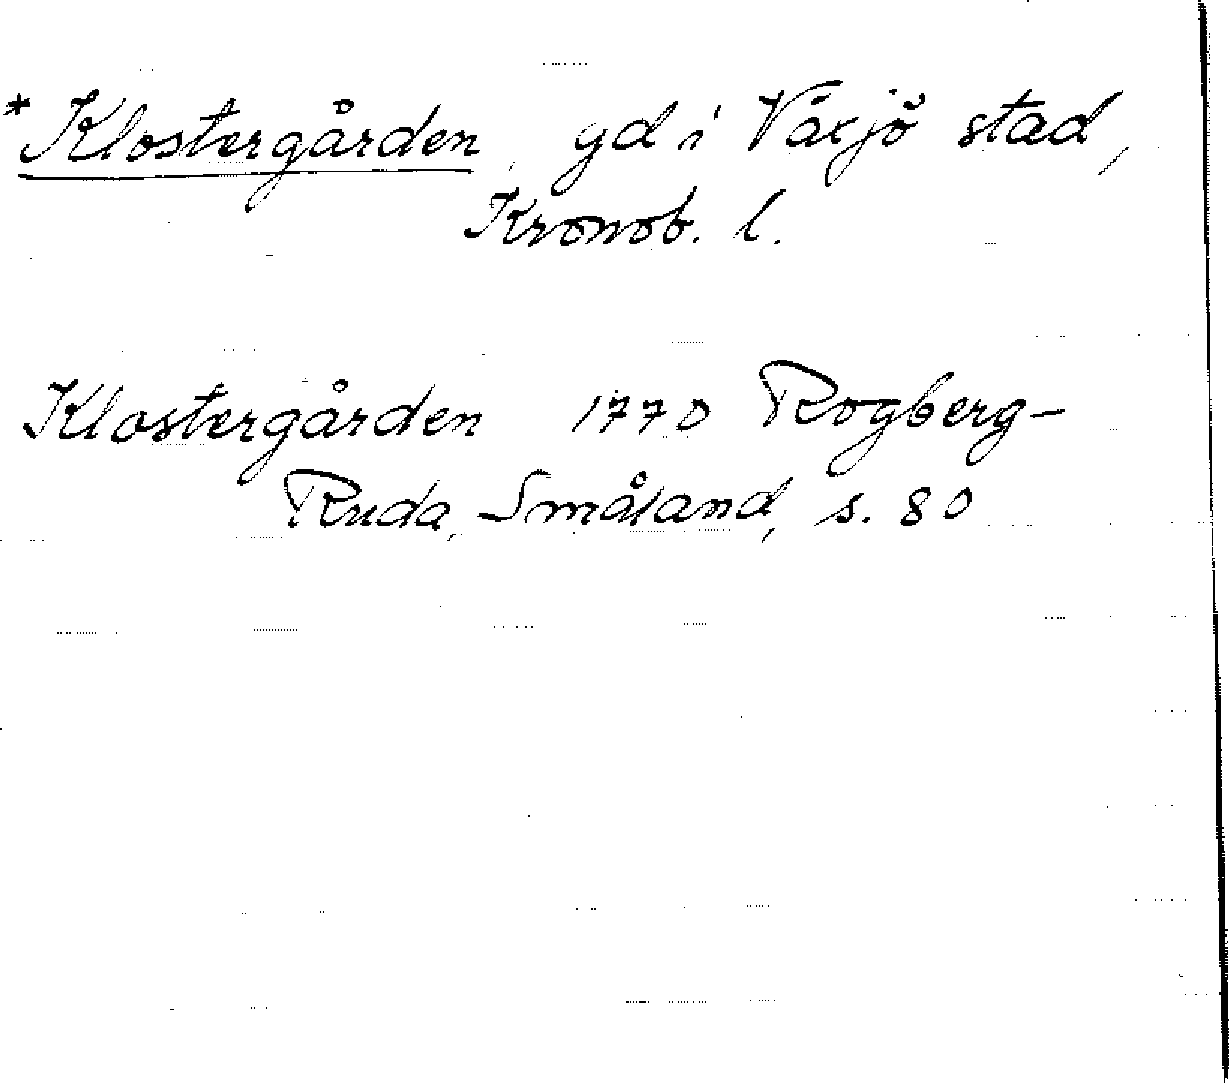 *Klostergården, gd i Växjö stad,
Kronob. l.
Klostergården 1770 Rogberg-
Ruda, Småland, s. 80